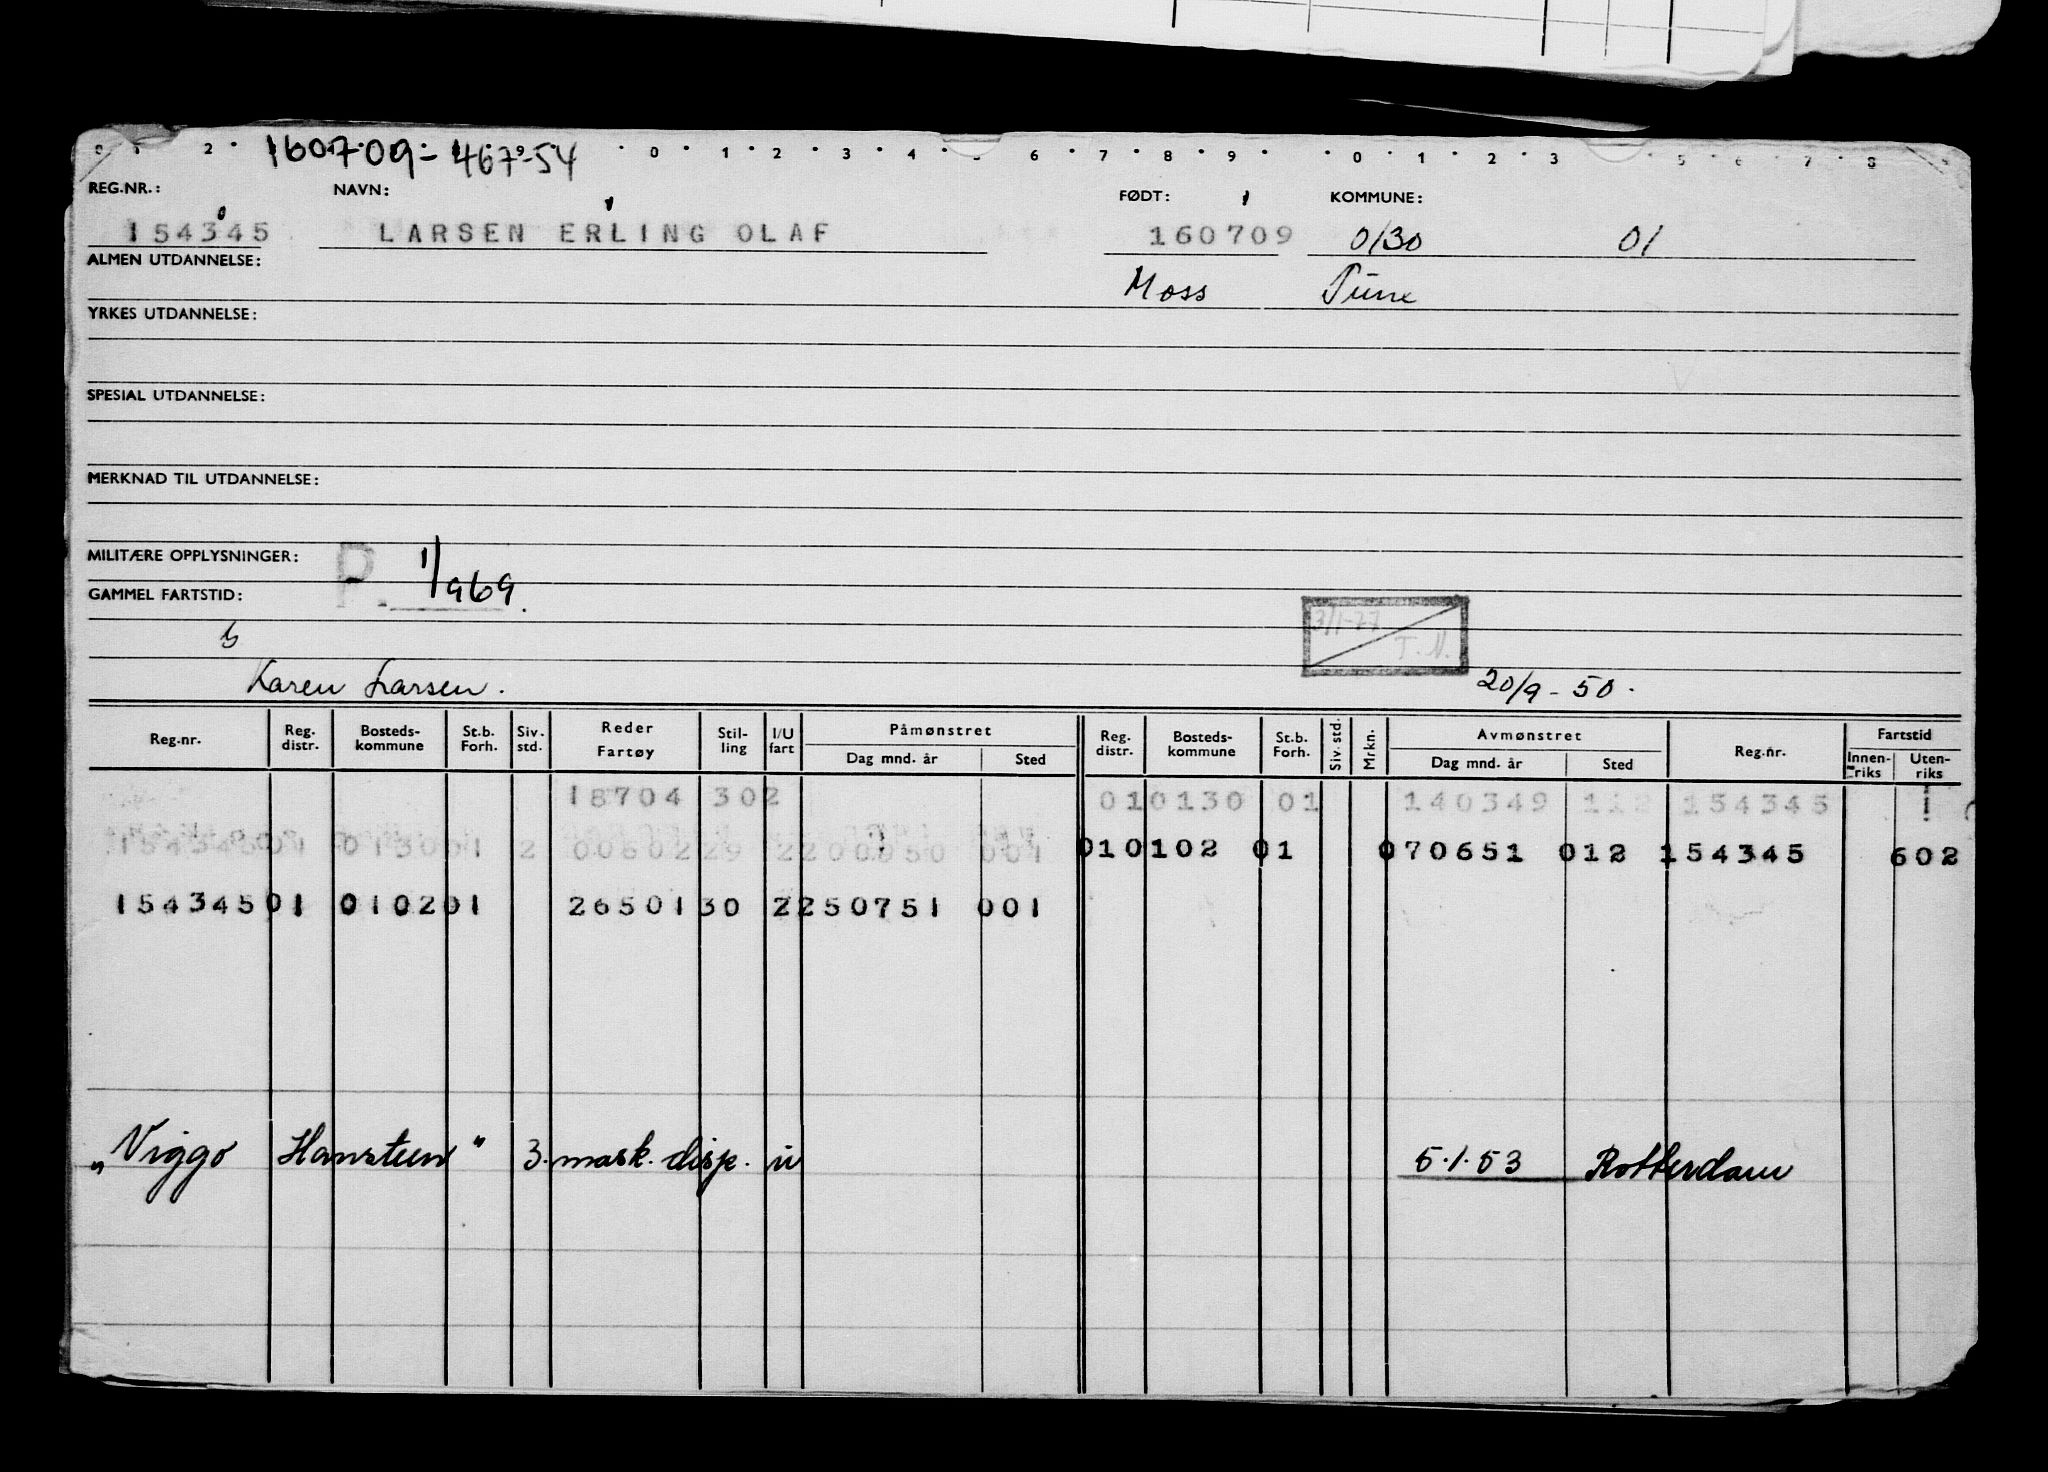 2 160709-467-54 0 1 2 3 4 5 6 7 8 9 0 1 2 3 5 6 7 8
REG.NR.: NAVN: FØDT: KOMMUNE:
154345 LARSEN ERLING OLAF 160709 0130 01
ALMEN UTDANNELSE: Moss Tune
YRKES UTDANNELSE:
SPESIAL UTDANNELSE:
MERKNAD TIL UTDANNELSE:
MILITÆRE OPPLYSNINGER: P. 1/969.
GAMMEL FARTSTID:
3/1-77 T.N.
Karen Larsen. 20/9-50.
Reg.nr. Reg. distr. Bosteds-kommune St.b. Forh. Siv. std. Reder Fartøy Stil-ling I/U fart Påmønstret Dag mnd. år Sted Reg. distr. Bosteds-kommune St.b. Forh. Siv. std. Mrkn. Avmønstret Dag mnd. år Sted Reg.nr. Fartstid Innen-riks Uten-riks
18704 302 010130 01 140349 112 154345
154345 01 0130 01 2 00602 29 2 200950 001 010102 01 070651 012 154345 602
154345 01 0102 01 26501 30 2 250751 001
„Viggo Hansteen" 3. mask. disp. u 5.1.53 Rotterdam